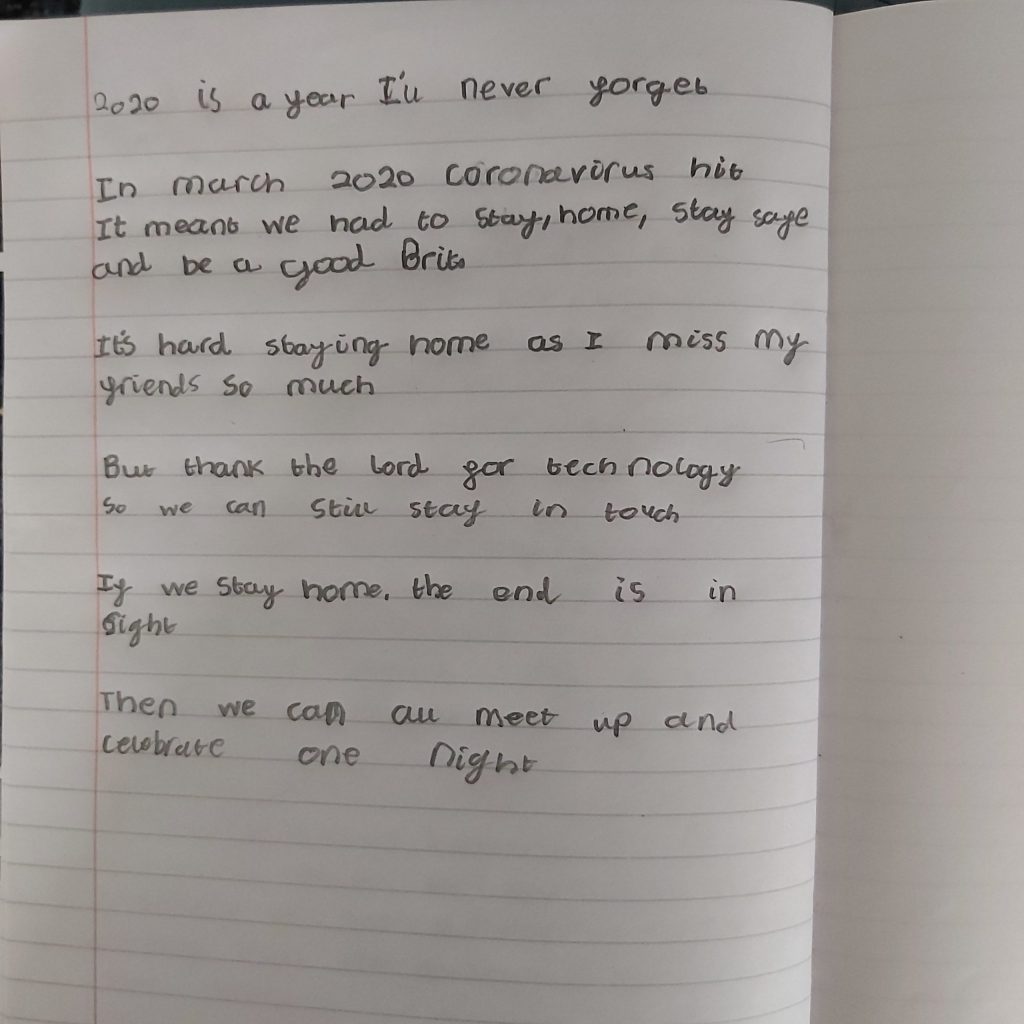 2020 is a year I'll never forget
In march 2020 coronavirus hit
It meant we had to stay, home, stay safe
and be a good Brit.
It's hard staying home as I miss my
friends so much
But thank the lord for technology
So we can still stay in touch
If we stay home. the end is in
sight
Then we can all meet up and
celebrate one night